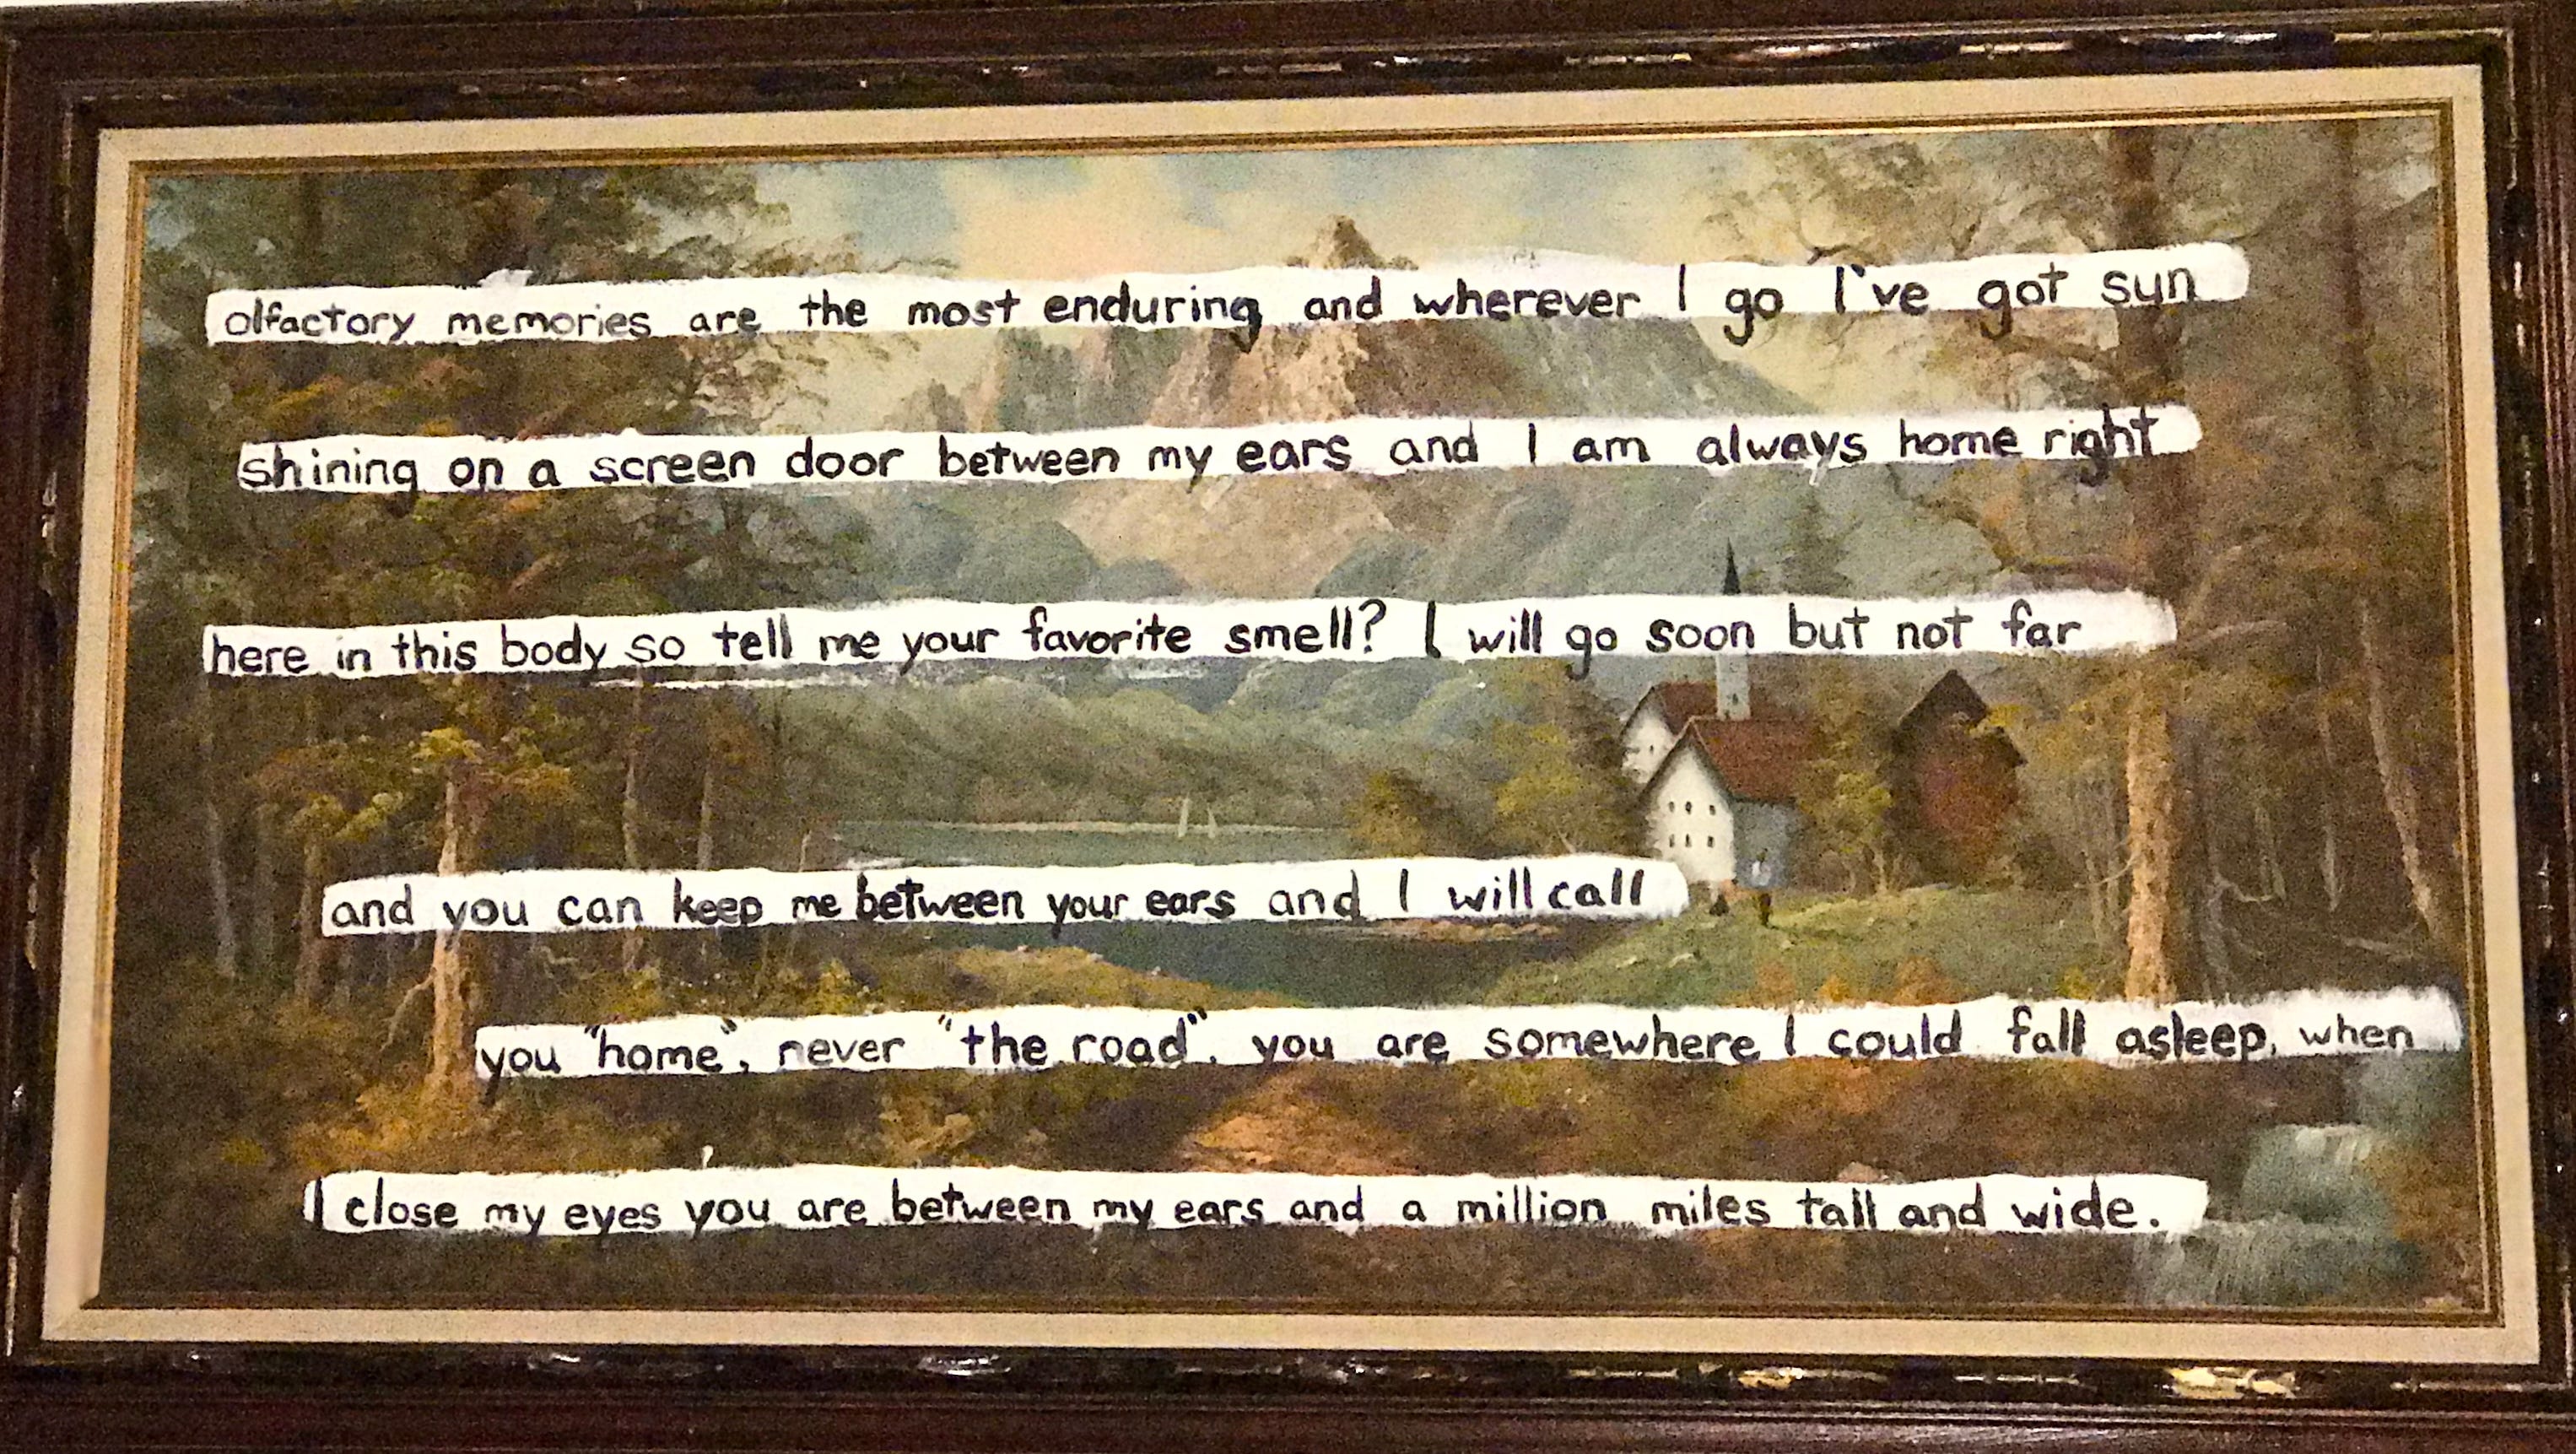 olfactory memories are the most enduring and wherever I go I've got sun
shining on a screen door between my ears and I am always home right
here in this body so tell me your favorite smell? I will go soon but not far
and you can keep me between your ears and I will call
you "home", never "the road". you are somewhere I could fall asleep, when
I close my eyes you are between my ears and a million miles tall and wide.